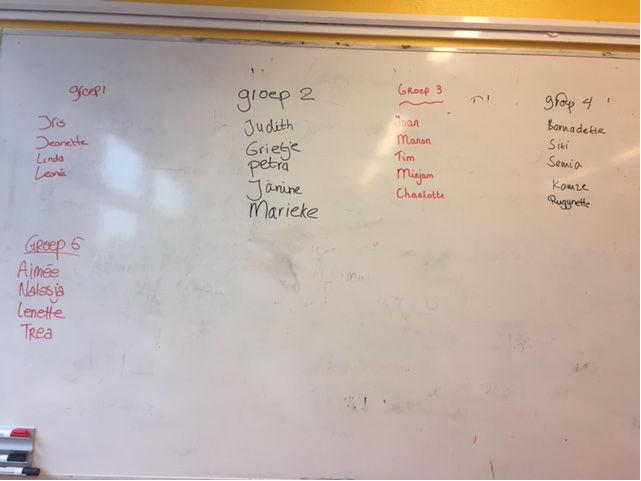 groep1
Iris
Jeanette
Linda
Leonie
groep 2
Judith
Grietje
petra
Janine
Marieke
Groep 3
Joan
Manon
Tim
Mirjam
Charlotte
groep 4
Bernadette
Siti
Semia
Groep 5
Aimée
Natasja
Lenette
Trea